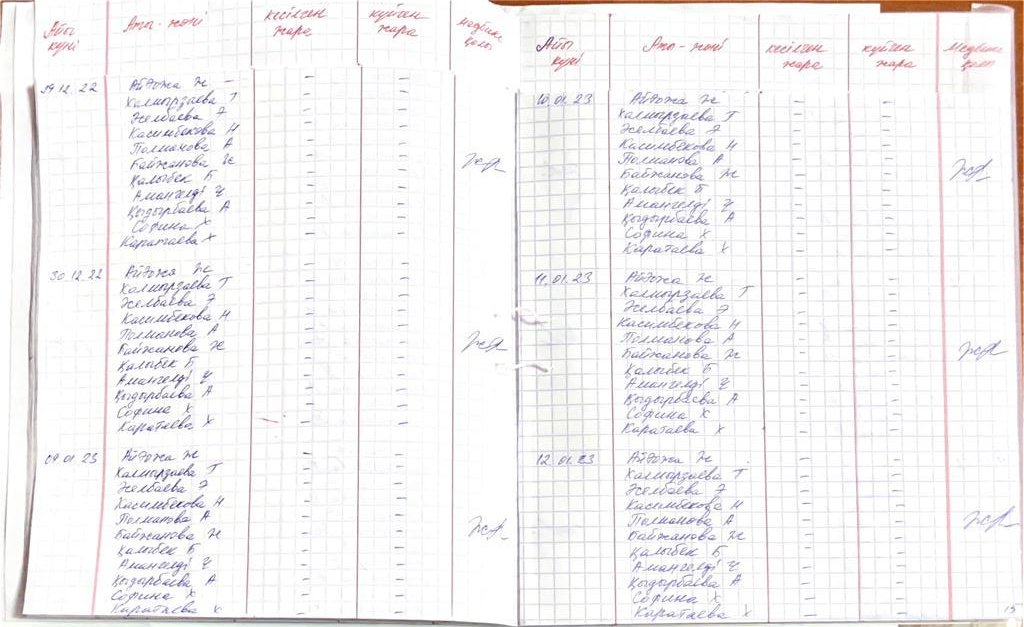 Айы күні Аты-жөні кесілген жара күйген жара медбике қолы
29.12.22 Айдожа Ж — –
Калмырзаева Т –  –
Желбаева Э – –
Касимбекова Н – –
Полманова А – –
Байжанова Ж – –
Қалыбек Б – –
Амангелді Ұ – –
Қыдырбаева А – –
Софина Х – –
Каратаева Х – –
30.12.22 Айдожа Ж – –
Калмырзаева Т – –
Желбаева Э – –
Касимбекова Н – –
Полманова А – –
Байжанова Ж – –
Қалыбек Б – –
Амангелді Ұ – –
Қыдырбаева А – –
Софина Х – –
Каратаева Х – –
09.01.23 Айдожа Ж – –
Калмырзаева Т – –
Желбаева Э – –
Касимбекова Н – –
Полманова А – –
Байжанова Ж – –
Қалыбек Б – –
Амангелді Ұ – –
Қыдырбаева А – –
Софина Х – –
Каратаева Х – –
Айы күні Аты-жөні кесілген жара күйген жара Медбике қолы
10.01.23 Айдожа Ж – –
Калмырзаева Т – –
Желбаева Э – –
Касимбекова Н – –
Полманова А – –
Байжанова Ж – –
Қалыбек Б – –
Амангелді Ұ – –
Қыдырбаева А – –
Софина Х – –
Каратаева Х – –
11.01.23 Айдожа Ж – –
Калмырзаева Т – –
Желбаева Э – –
Касимбекова Н – –
Полманова А – –
Байжанова Ж – –
Қалыбек Б – –
Амангелді Ұ – –
Қыдырбаева А – –
Софина Х – –
Каратаева Х – –
12.01.23 Айдожа Ж – –
Калмырзаева Т – –
Желбаева Э – –
Касимбекова Н – –
Полманова А – –
Байжанова Ж – –
Қалыбек Б – –
Амангелді Ұ – –
Қыдырбаева А – –
Софина Х – –
Каратаева Х – –
15